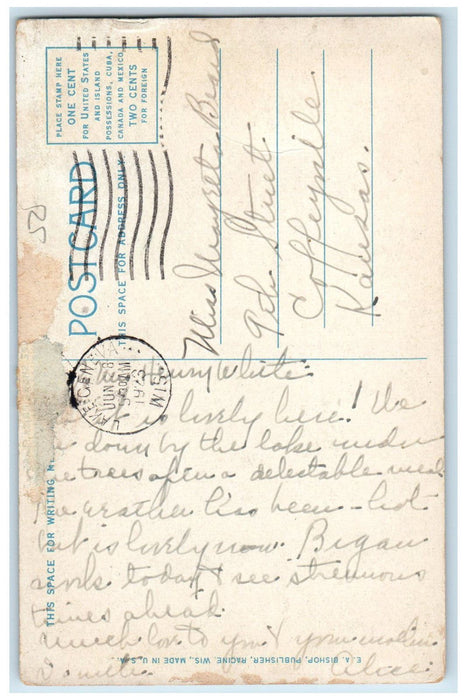 PLACE STAMP HERE
ONE CENT
FOR UNITED STATES
AND ISLAND
POSSESSIONS, CUBA,
CANADA AND MEXICO
TWO CENTS
FOR FOREIGN
POSTCARD
THIS SPACE FOR ADDRESS ONLY
Miss Beard
9th Street
Coffeyville
Kansas.
JUN
WIS.
Henry White
is lovely here! We
down by the lake under
trees after a delectable meal
weather has been hot
but is lovely now. Began
work today & see strenuous
times ahead
Much love to you & your mother
Alice
THIS SPACE FOR WRITING
E. A. BISHOP, PUBLISHER, RACINE, WIS., MADE IN U. S. A.